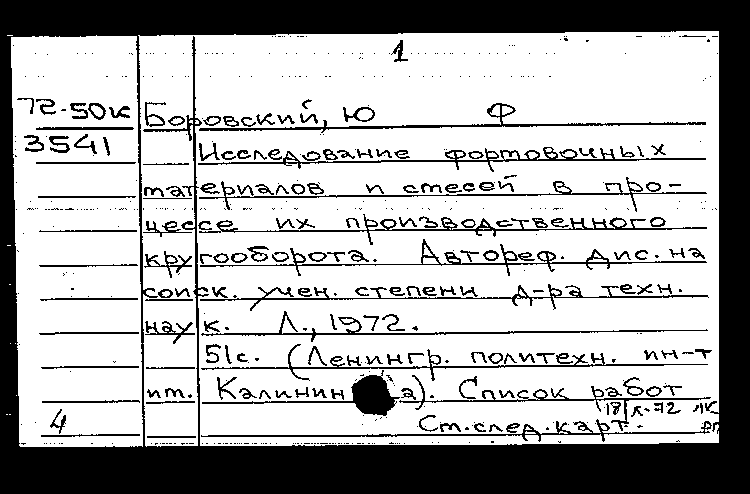 1
72-50к Боровский, Ю Ф
3541 Исследование фортовочных
материалов и смесей в про-
цессе их производственного
кругооборота. Автореф. дис. на
соиск. учен. степени д-ра техн.
наук. Л., 1972.
51с. (Ленингр. политехн. ин-т
им. Калинин а). Список работ
18/х-72 ЛК
4 См. след. карт.